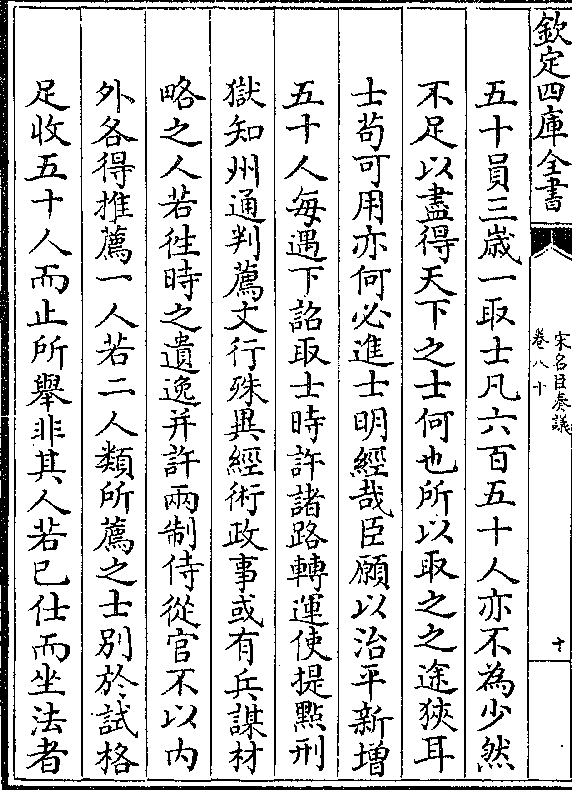 欽定四庫全書
宋名臣奏議
卷八十
十
五十員三歲一取士凡六百五十人亦不為少然
不足以盡得天下之士何也所以取之之途狹耳
士苟可用亦何必進士明經哉臣願以治平新增
五十人每遇下詔取士時許諸路轉運使提點刑
獄知州通判薦文行殊異經術政事或有兵謀材
略之人若徃時之遺逸并許兩制侍從官不以内
外各得推薦一人若二人類所薦之士別於試格
足收五十人而止所舉非其人若已仕而坐法者